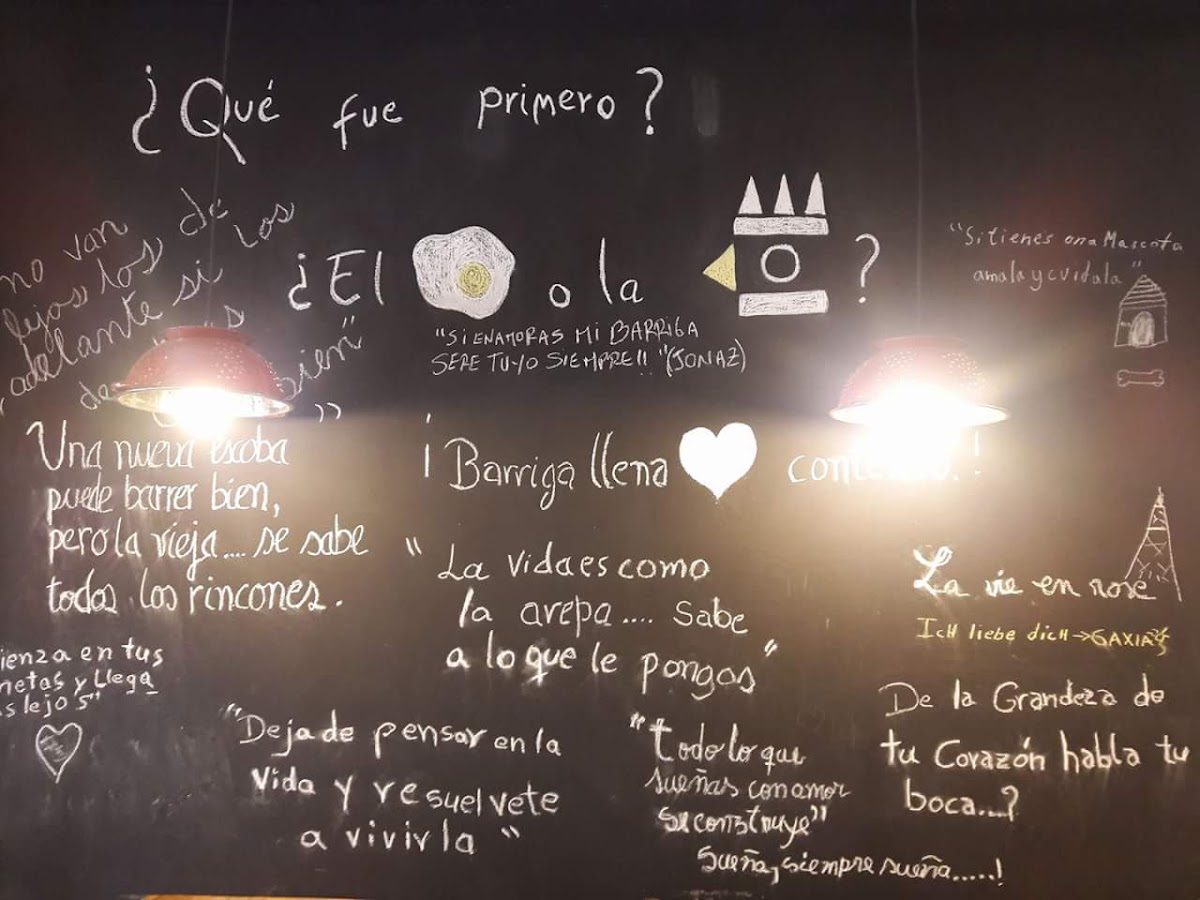 ¿Qué fue primero?
¿El o la ?
"SI ENAMORAS MI BARRIGA
SERE TUYO SIEMPRE!!" (JONAZ)
no van
lejos los de
adelante si los
de
bien"
"Si tienes una Mascota
amala y cuidala"
Una nueva escoba
puede barrer bien,
pero la vieja.... se sabe
todos los rincones.
¡Barriga llena !
"La vida es como
la arepa.... sabe
a lo que le pongas"
La vie en rose
IcH liebe dicH→GAXIA
en tus
metas y Llega
lejos"
"Deja de pensar en la
vida y resuelvete
a vivirla"
"todo lo que
sueñas con amor
se construye"
Sueña, siempre sueña.....!
De la Grandeza de
tu Corazón habla tu
boca...?